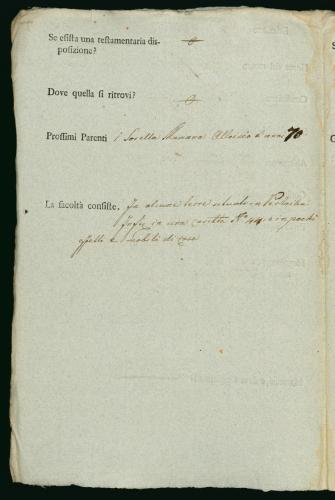 Se esista una testamentaria dis-
posizione?
Dove quella si ritrovi?
Prossimi Parenti 1 Sorella Mariana d'anni 70
La facoltà consiste. In alcune terre situate a
in una casetta N° 44 e in pochi
effetti e mobili di casa